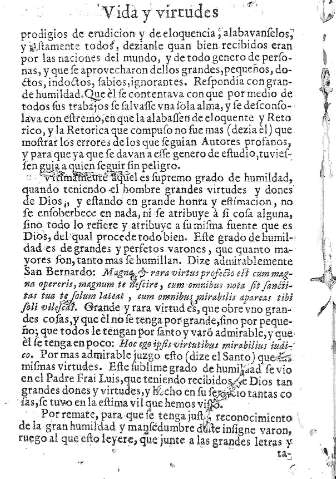 Vida y virtudes
prodigios de erudicion y de eloquencia, alabavanselos,
y justamente todos, dezianle quan bien recibidos eran
por las naciones del mundo, y de todo genero de perso-
nas, y que se aprovecharon dellos grandes, pequeños, do-
ctos, indoctos, sabios, ignorantes. Respondia con gran-
de humildad. Que èl se contentava con que por medio de
todos sus trabajos se salvasse vna sola alma, y se desconso-
lava con estremo, en que la alabassen de eloquente y Reto
rico, y la Retorica que compuso no fue mas (dezia el) que
mostrar los errores de los que seguian Autores profanos,
y para que ya que se davan a esse genero de estudio, tuvies-
sen guia a quien seguir sin peligro.
Vltimamente aquel es supremo grado de humildad,
quando teniendo el hombre grandes virtudes y dones
de Dios, y estando en grande honra y estimacion, no
se ensoberbece en nada, ni se atribuye à si cosa alguna,
sino todo lo refiere y atribuye a su misma fuente que es
Dios, del qual procede todo bien. Este grado de humil-
dad es de grandes y perfetos varones, que quanto ma-
yores son, tanto mas se humillan. Dize admirablemente
San Bernardo: Magna, & rara virtus profecto est cum mag-
na opereris, magnum te nescire, cum omnibus nota sit sancti-
tas tua te solum lateat, cum omnibus mirabilis apareas tibi
soli vilescas. Grande y rara virtud es, que obre vno gran-
des cosas, y que èl no se tenga por grande, sino por peque-
ño; que todos le tengan por santo y varõ admirable, y que
èl se tenga en poco: Hoc ego ipsis virtutibus mirabilius iudi-
co. Por mas admirable juzgo esto (dize el Santo) que las
mismas virtudes. Este sublime grado de humildad se vio
en el Padre Frai Luis, que teniendo recibidos de Dios tan
grandes dones y virtudes, y hecho en su servicio tantas co
sas, se tuvo en la estima vil que hemos visto.
Por remate, para que se tenga justo reconocimiento
de la gran humildad y mansedumbre deste insigne varon,
ruego al que esto leyere, que junte a las grandes letras y
ta-